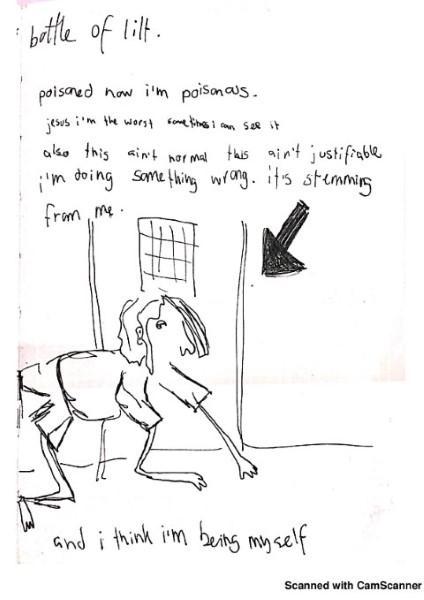 bottle of lilt.
poisoned now i'm poisonous.
jesus i'm the worst sometimes i can see it
also this ain't normal this ain't justifiable
i'm doing something wrong. it's stemming
from me.
and i think i'm being myself
Scanned with CamScanner